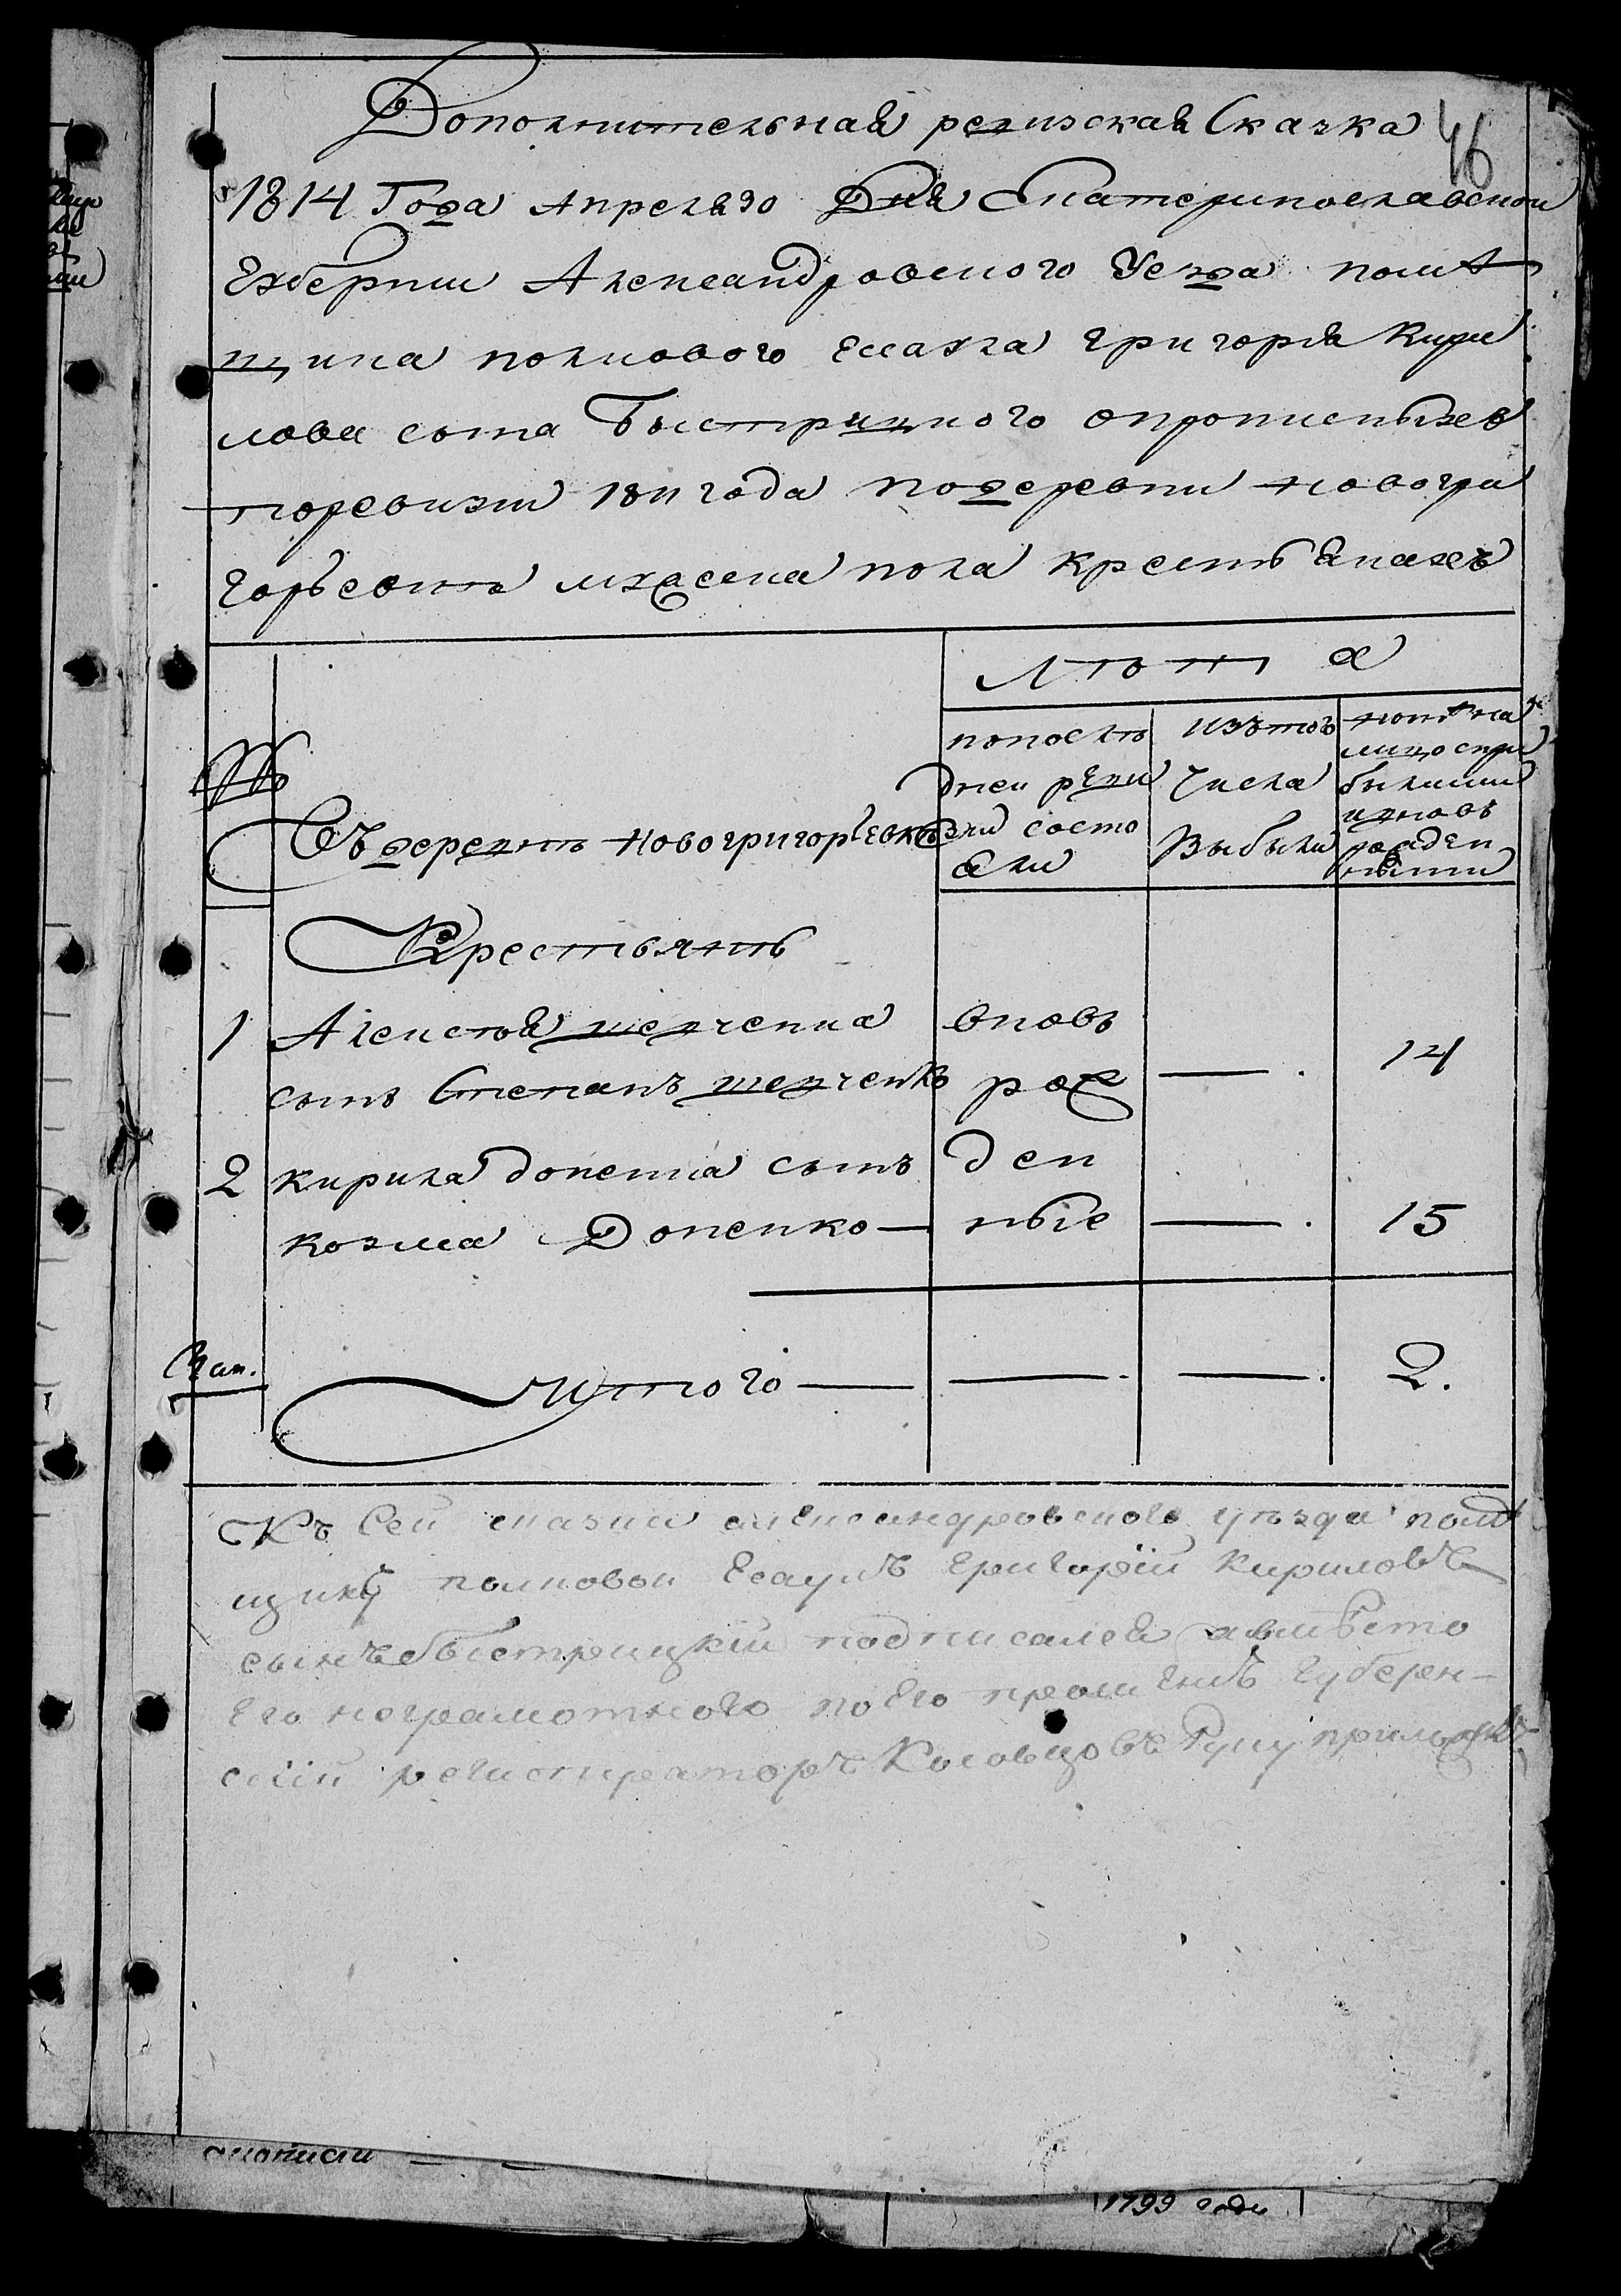 Дополнительная ревизская Сказка
46
1814 Года Апреля 30 Дня Екатеринославской
Губернии Александровского Уезда помѣ
щика полкового есаула Григорія Кири
лова сына Быстрицкого опрописныхъ в
поревизіи 1811 года подеревни новогри
горьевки мужеска пола крестьянахъ
Лѣта
№
Въ деревнѣ Новогригорьевкѣ
попослѣ
дней реви
зіи состо
яли
изътого
числа
Выбыли
нынѣ на
лицо спри
былыми
ивновь
рожден
ными
Крестьянъ
1 Алексѣя шевченка вновь
сынъ Степанъ шевченко рож — 14
2 кирила доненка сынъ ден
козма Доненко — ные — 15
Итого — — — 2.
Къ Сей сказки александровского уѣзда помѣ
щикъ полковой Есаулъ Григорій Кириловъ
сынъ Быстрицкій подписался авмѣсто
Его неграмотного по Его прошенію Губерн-
скій регистраторъ руку приложилъ
1799 годи